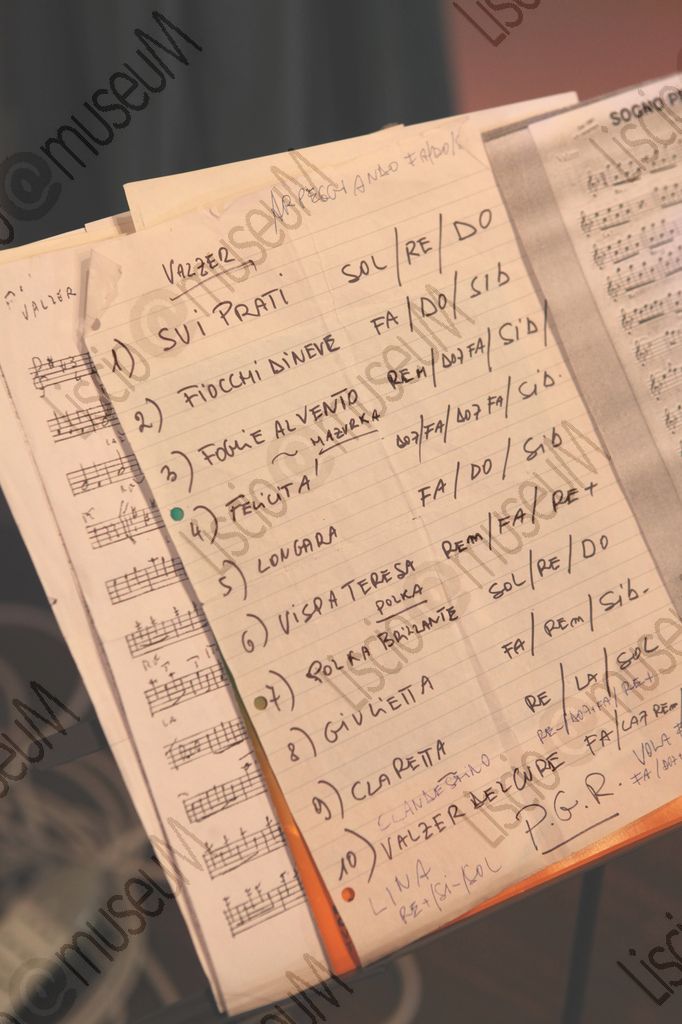 SOGNO P
ARPEGGIANDO FA/DO/
VALZER
VALZER
1) SUI PRATI SOL/RE/DO
2) FIOCCHI DI NEVE FA/DO/SIb
3) FOGLIE AL VENTO REm/DO7 FA/SIb/
~ MAZURKA
4) FELICITA' DO7/FA/DO7 FA/SIb.
5) LONGARA FA/DO/SIb
6) VISPA TERESA REm/FA/RE+
POLKA
7) POLKA BRILLANTE SOL/RE/DO
8) GIULIETTA FA/REm/SIb.
9) CLARETTA RE/LA/SOL
CLANDESTINO
10) VALZER DEL CUORE FA/LA7 REm/
P.G.R.
VOLA
FA/DO7
LINA
RE+/SI-/SOL
Liscio@museuM